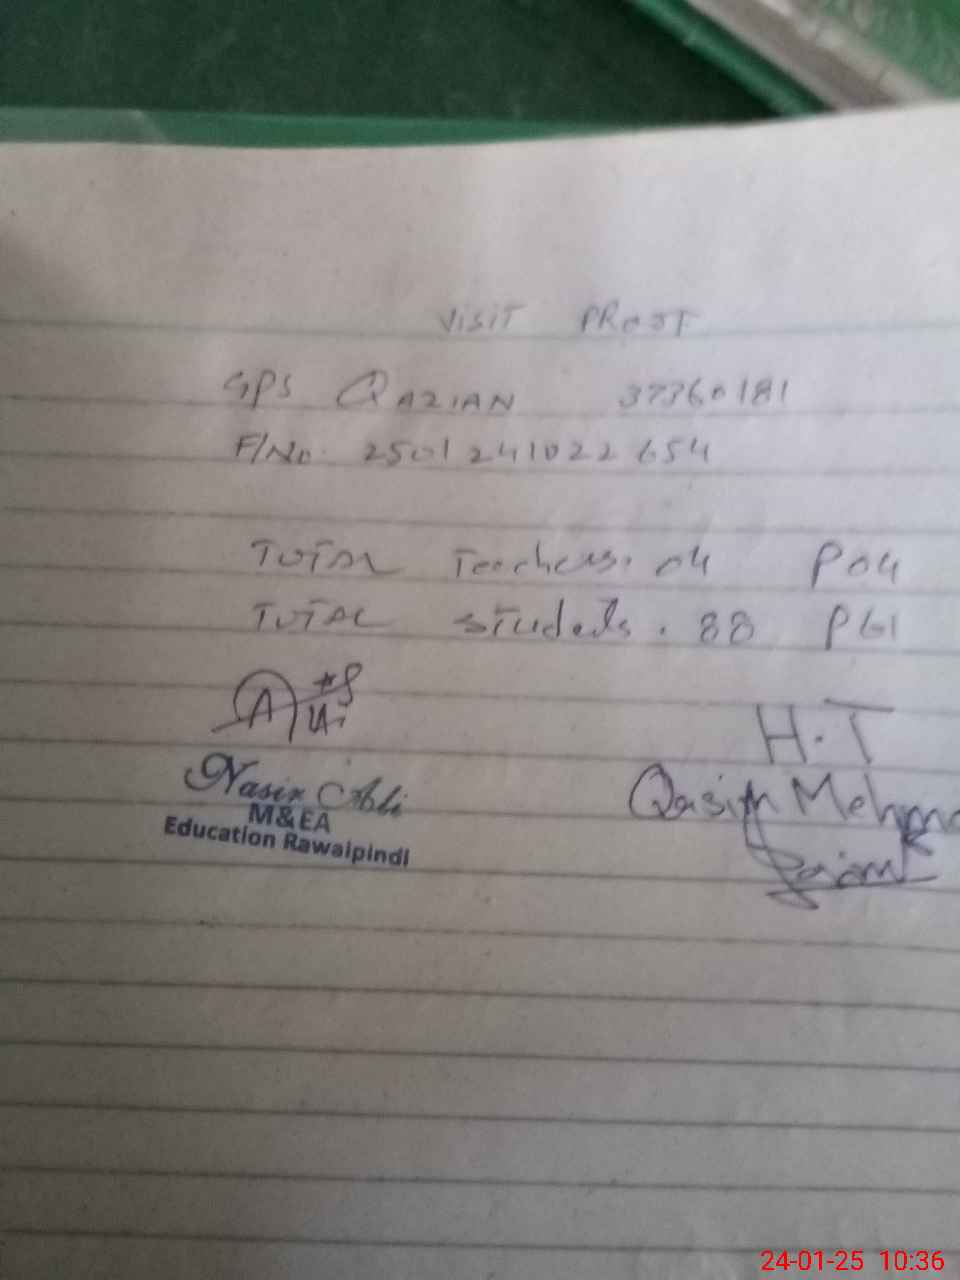 VISIT PROOF
GPS QAZIAN 37360181
F/No. 2501241022654
TOTAL Teachers. 04 P04
TOTAL Students. 88 P61
Nasir Ali
M&EA
Education Rawalpindi
H.T
Qasim Mehmo
24-01-25 10:36